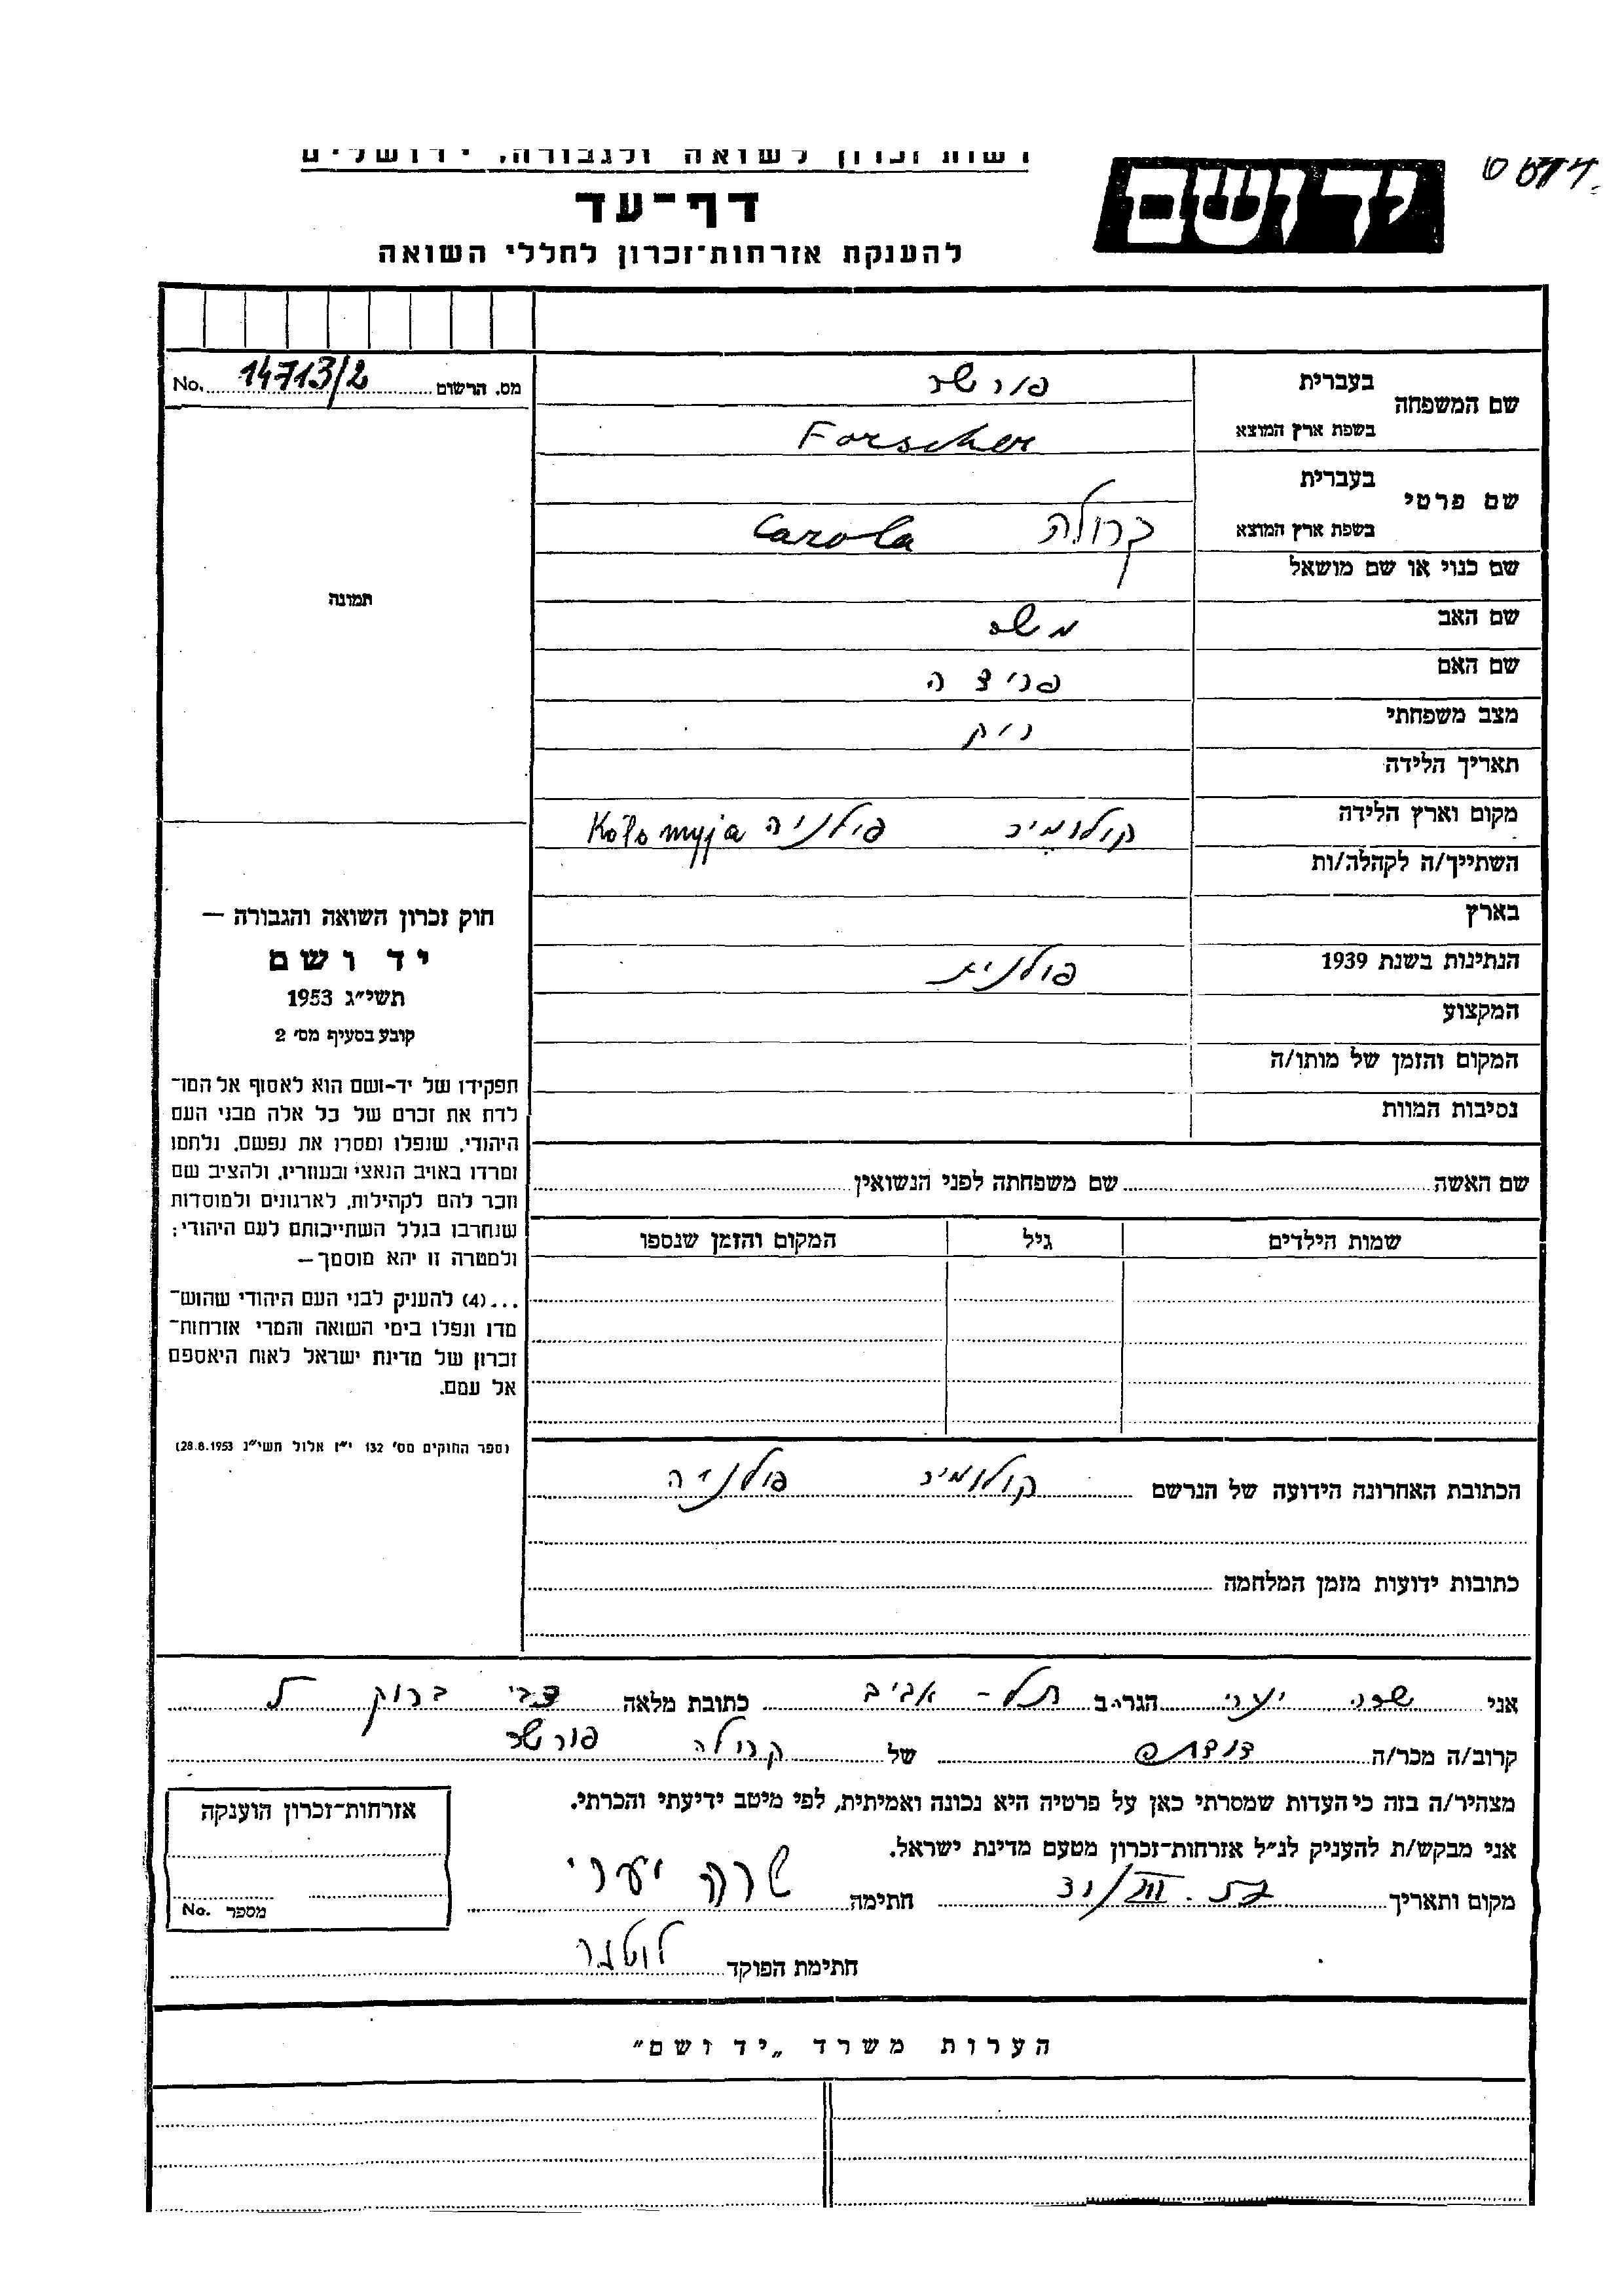 רשות זכרון לשואה ולגבורה, ירושלים
יד ושם
דף-עד
להענקת אזרחות-זכרון לחללי השואה
מס. הרשום 14713/2 No.
שם המשפחה
בעברית פורשר
בשפת ארץ המוצא Forscher
שם פרטי
בעברית
בשפת ארץ המוצא קרולה Carola
שם כנוי או שם מושאל
שם האב משה
שם האם פריצה
מצב משפחתי רוק
תאריך הלידה
מקום וארץ הלידה קולומיר פולניה Kołomyja
השתייך/ה לקהלה/ות
בארץ
הנתינות בשנת 1939 פולנית
המקצוע
המקום והזמן של מותו/ה
נסיבות המוות
שם האשה שם משפחתה לפני הנשואין
שמות הילדים גיל המקום והזמן שנספו
הכתובת האחרונה הידועה של הנרשם קולומיר פולניה
כתובות ידועות מזמן המלחמה
תמונה
חוק זכרון השואה והגבורה —
יד ושם
תשי״ג 1953
קובע בסעיף מס׳ 2
תפקידו של יד-ושם הוא לאסוף אל המו־
לדת את זכרם של כל אלה מבני העם
היהודי, שנפלו ומסרו את נפשם, נלחמו
ומרדו באויב הנאצי ובעוזריו, ולהציב שם
וזכר להם לקהילות, לארגונים ולמוסדות
שנחרבו בגלל השתייכותם לעם היהודי;
ולמטרה זו יהא מוסמך —
...(4) להעניק לבני העם היהודי שהוש־
מדו ונפלו בימי השואה והמרי אזרחות־
זכרון של מדינת ישראל לאות היאספם
אל עמם.
(ספר החוקים מס׳ 132 י״ז אלול תשי״ג 28.8.1953)
אני שרה יערי הגר/ה ב תל-אביב כתובת מלאה צבי ברוק 5
קרוב/ה מכר/ה של קרולה פורשר
מצהיר/ה בזה כי העדות שמסרתי כאן על פרטיה היא נכונה ואמיתית, לפי מיטב ידיעתי והכרתי.
אני מבקש/ת להענק לנ״ל אזרחות-זכרון מטעם מדינת ישראל.
מקום ותאריך חתימה שרה יערי
חתימת הפוקד
אזרחות-זכרון הוענקה
מספר No.
הערות משרד „יד ושם״